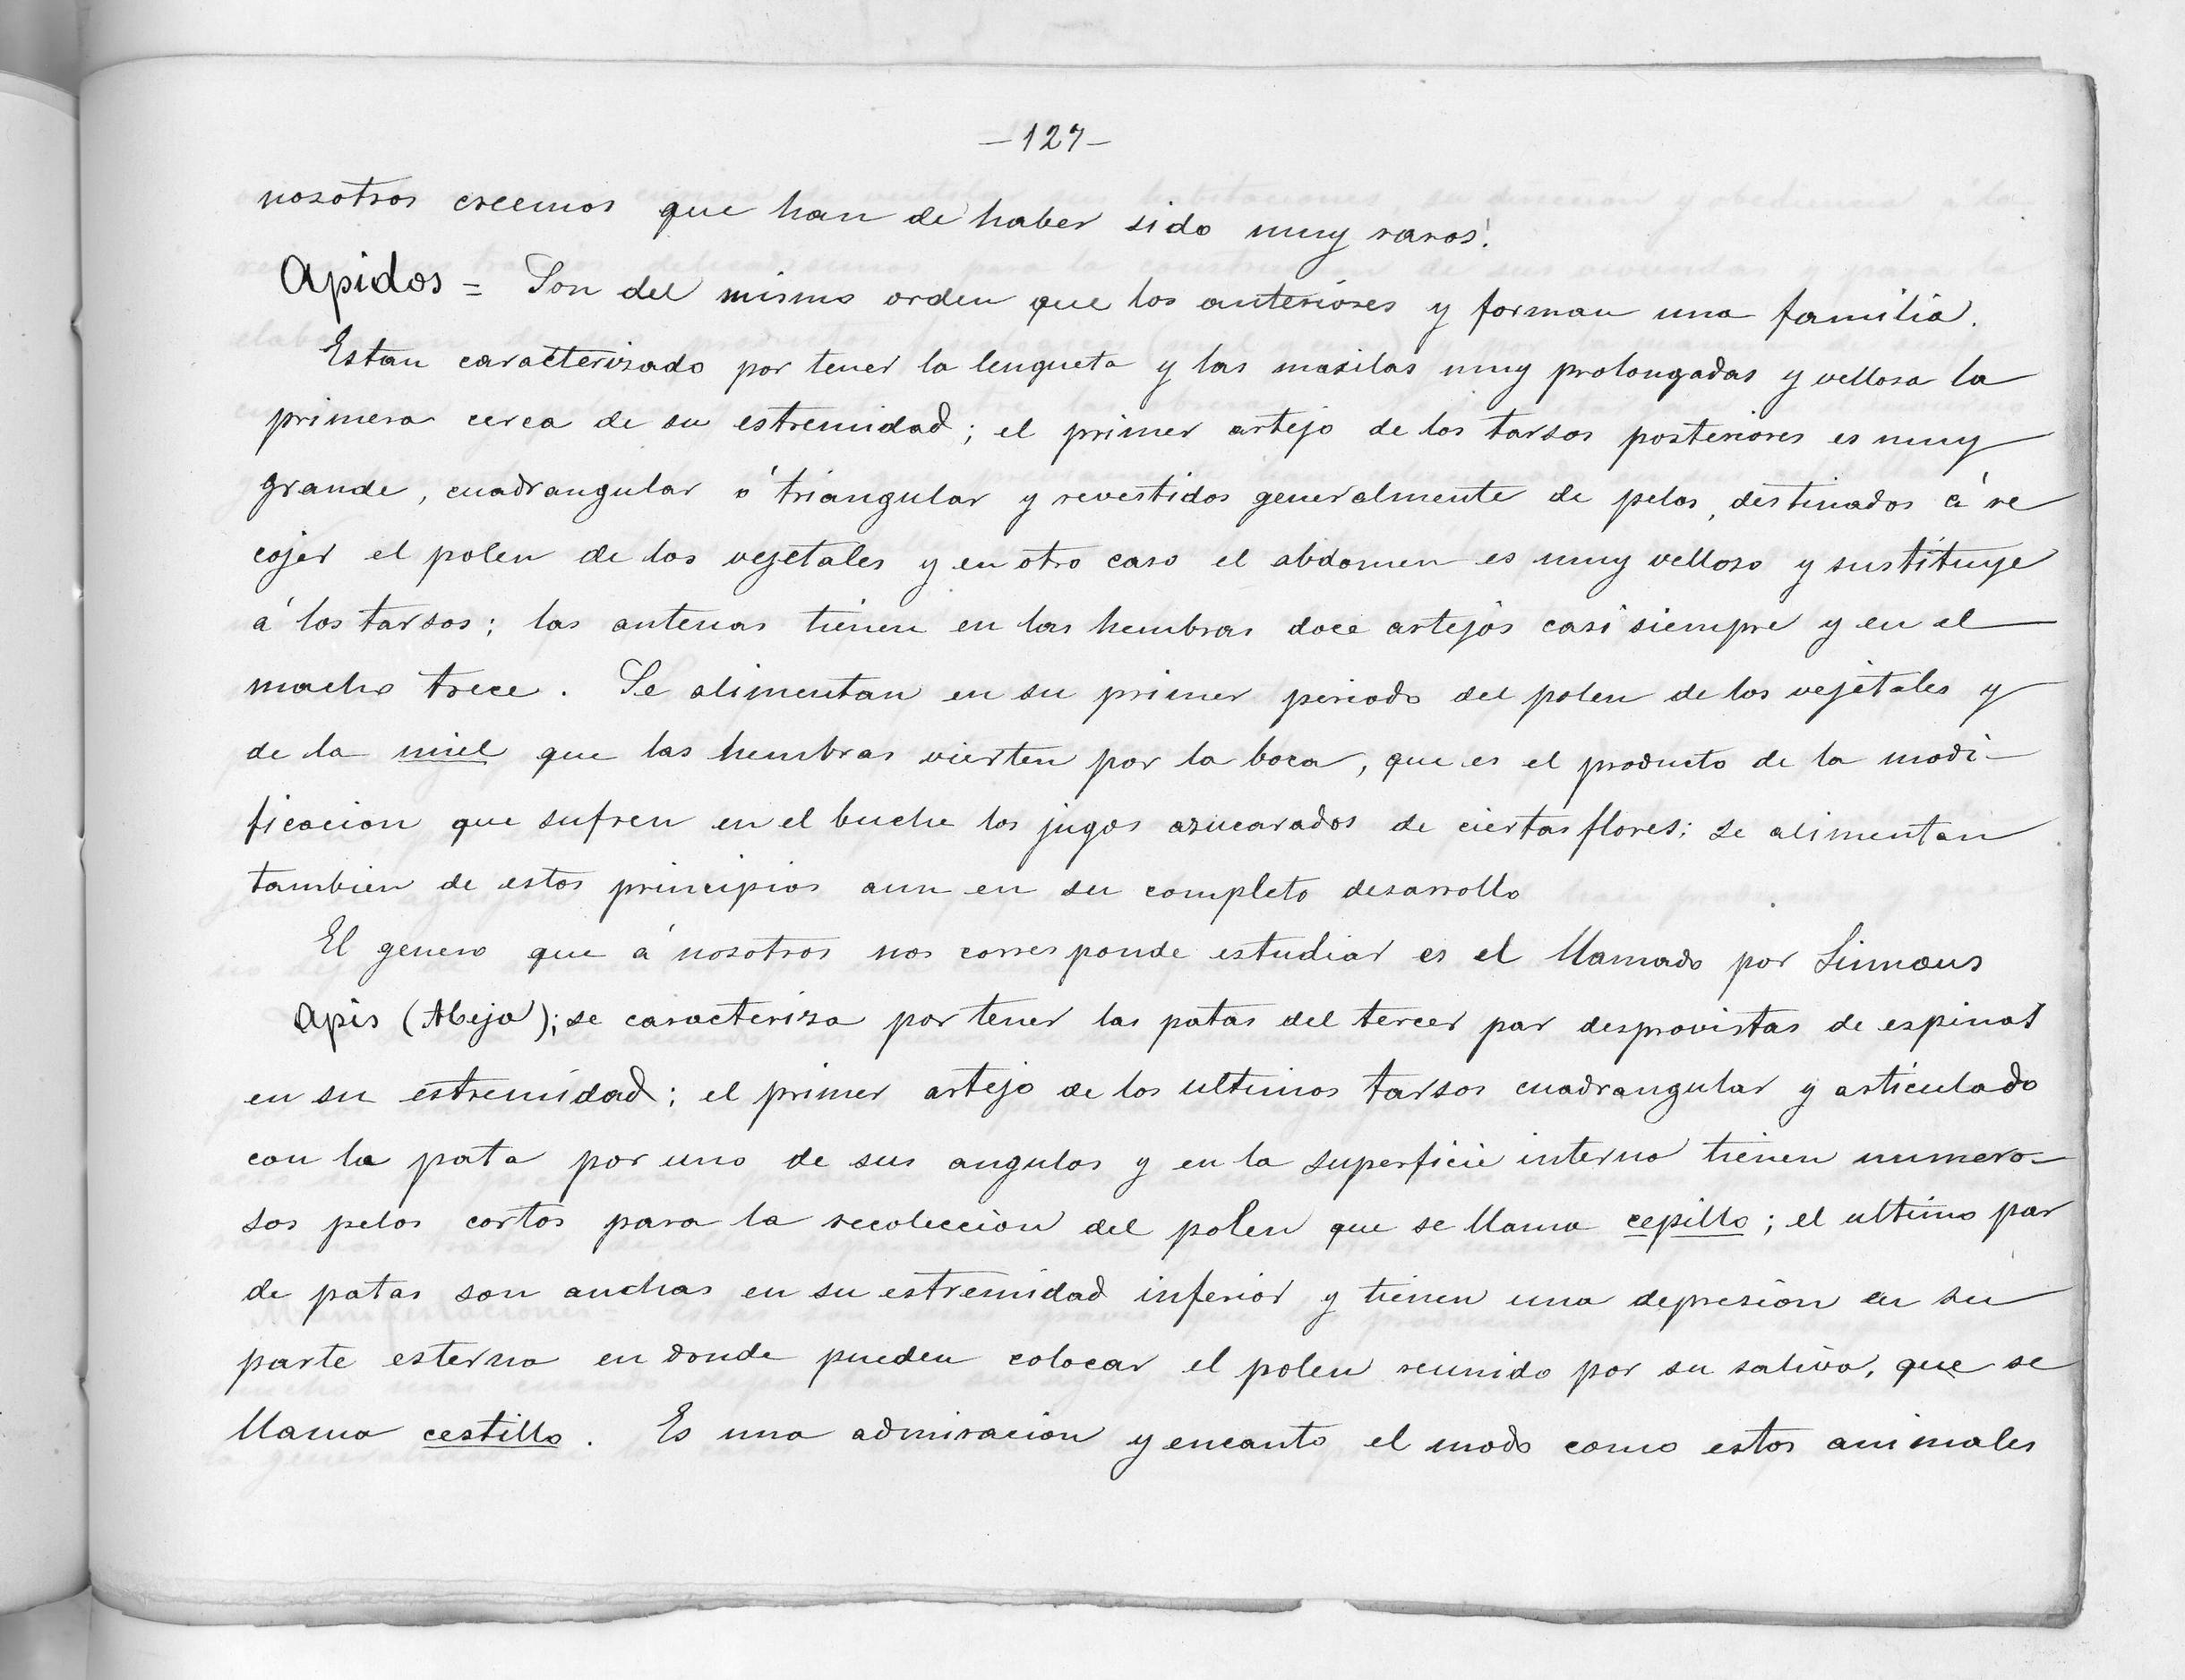 -127-
nosotros creemos que han de haber sido muy raros.
Apidos = Son del mismo orden que los anteriores y forman una familia.
Estan caracterizado por tener la lengueta y las maxilas muy prolongadas y vellosa la
primera cerca de su estremidad; el primer artejo de los tarsos posteriores es muy
grande, cuadrangular ó triangular y revestidos generalmente de pelos, destinados á re
cojer el polen de los vejetales y en otro caso el abdomen es muy velloso y sustituye
á los tarsos; las antenas tienen en las hembras doce artejos casi siempre y en el
macho trece. Se alimentan en su primer periodo del polen de los vejetales y
de la miel que las hembras vierten por la boca, que es el producto de la modi-
ficacion que sufren en el buche los jugos azucarados de ciertas flores; se alimentan
tambien de estos principios aun en su completo desarrollo
El genero que á nosotros nos corresponde estudiar es el llamado por Linnaeus
Apis (Abeja); se caracteriza por tener las patas del tercer par desprovistas de espinas
en su estremidad; el primer artejo de los ultimos tarsos cuadrangular y articulado
con la pata por uno de sus angulos y en la superficie interna tienen numero-
sos pelos cortos para la recoleccion del polen que se llama cepillo; el ultimo par
de patas son anchas en su estremidad inferior y tienen una depresion en su
parte esterna en donde pueden colocar el polen reunido por su saliva, que se
llama cestillo. Es una admiracion y encanto el modo como estos animales